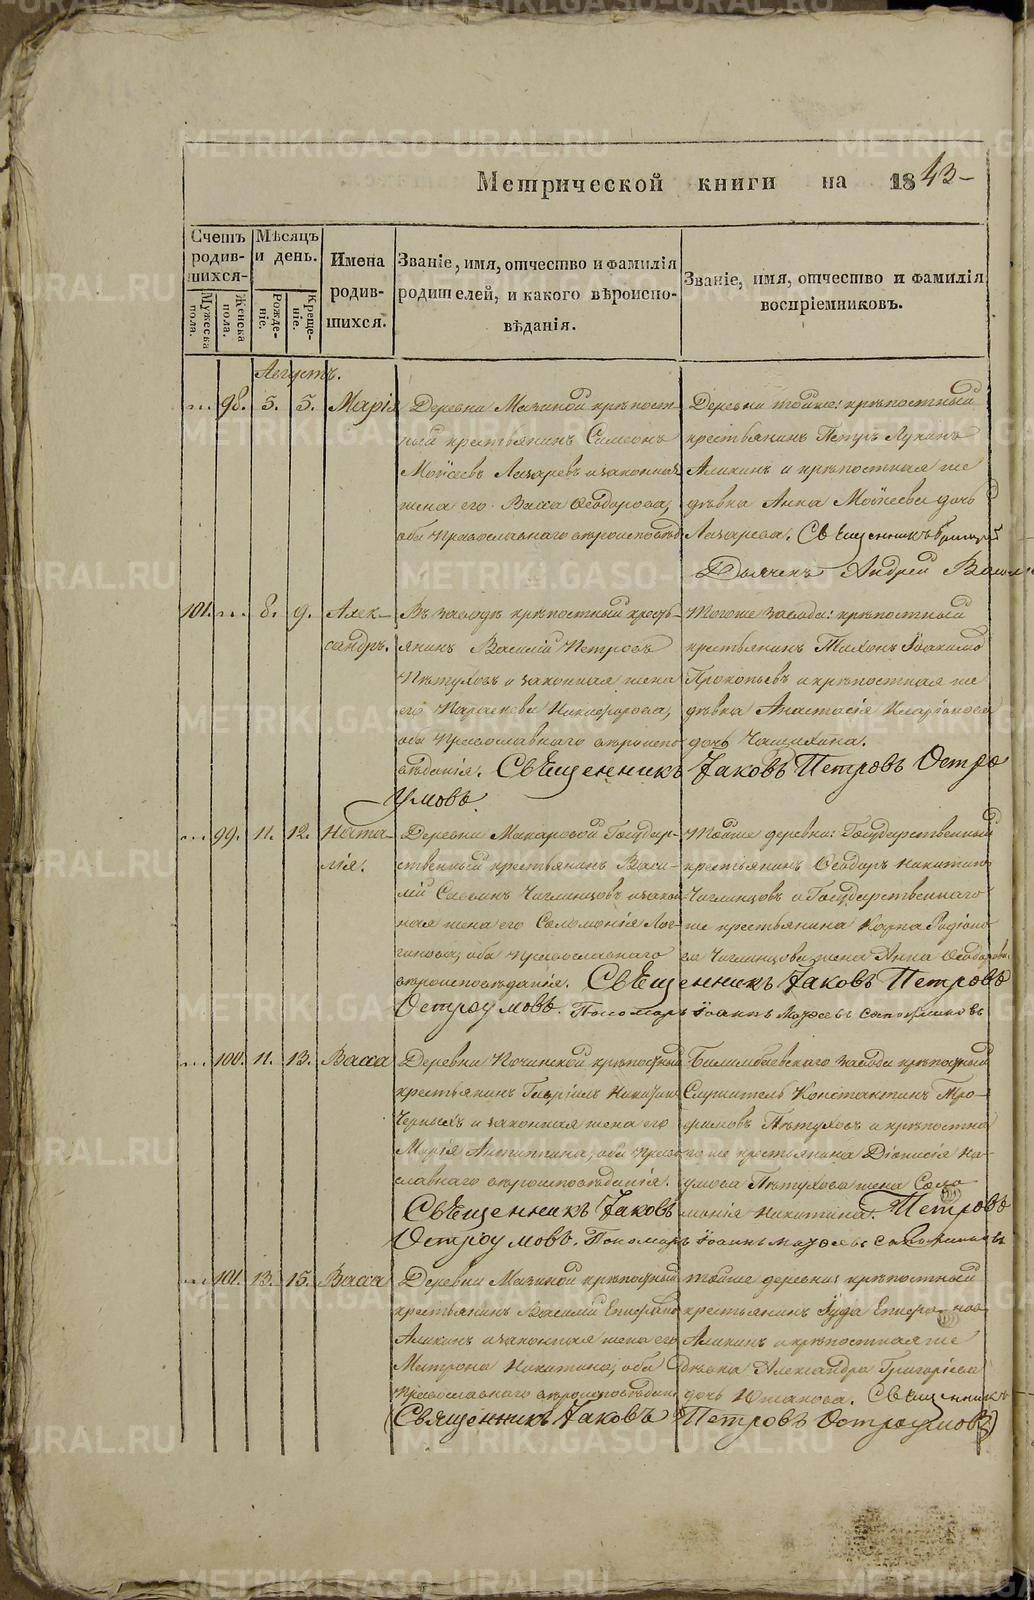 Метрической книги на 1843
Счетъ родившихся. Мѣсяцъ и день. Имена родившихся. Званіе, имя, отчество и фамилія родителей, и какого вѣроисповѣданія. Званіе, имя, отчество и фамилія воспріемниковъ.
Мужеска пола. Женска пола. Рожденіе. Крещеніе.
Августъ.
98. 5. 5. Марія Деревни Мазиной крѣпост-
ный крестьянинъ Симеонъ
Моѵсеевъ Лазаревъ и законная
жена его Васса Ѳеодорова,
оба Православнаго вѣроисповѣд
Деревни тойже: крѣпостный
крестьянинъ Петръ Лукинъ
Аликинъ и крѣпостная же
дѣвка Анна Моѵсеева дочь
Лазарева. Священникъ Григорій
Дьячекъ Андрей
101. 8. 9. Алек-
сандръ.
Въ заводѣ крѣпостный кресть-
янинъ Василій Петровъ
Пѣтуховъ и законная жена
его Параскева Никифорова,
оба Православнаго вѣроиспо-
вѣданія. Священникъ Іаковъ Петровъ Остро
умовъ.
Тогоже завода: крѣпостный
крестьянинъ Тихонъ Іоакимовъ
Прокопьевъ и крѣпостная же
дѣвка Анастасія Иларіонова
дочь Чащихина.
99. 11. 12. Ната-
лія.
Деревни Макаровой Государ-
ственный крестьянинъ Васи-
лій Саввинъ Чиглинцовъ и закон
ная жена его Соломонія Лог-
гинова, оба Православнаго
вѣроисповѣданія. Священникъ Іаковъ Петровъ
Остроумовъ. Пономарь Іоаннъ Матѳеевъ Сапожниковъ
Тойже деревни: Государственный
крестьянинъ Ѳеодоръ Никитинъ
Чиглинцовъ и Государственнаго
же крестьянина Карпа Родіоно
ва Чиглинцова жена Анна Ѳеодорова.
100. 11. 13. Васса Деревни Починской крѣпостный
крестьянинъ Гавріилъ Никитинъ
Черныхъ и законная жена его
Марія Антипина, оба Право-
славнаго вѣроисповѣданія.
Священникъ Іаковъ Петровъ
Остроумовъ. Пономарь Іоаннъ Матѳеевъ Сапожниковъ
Билимбаевскаго завода крѣпостный
Служитель Константинъ Тро-
фимовъ Пѣтуховъ и крѣпостна
го же крестьянина Діонисія На-
умова Пѣтухова жена Соло
монія Никитина.
101. 13. 15. Васса Деревни Мазиной крѣпостный
крестьянинъ Василій Епифановъ
Аликинъ и законная жена его
Матрона Никитина, оба
Православнаго вѣроисповѣдан.
Тойже деревни: крѣпостный
крестьянинъ Іуда Епифановъ
Аликинъ и крѣпостная же
дѣвка Александра Григорьева
дочь Южакова. Священникъ
(Священникъ Іаковъ Петровъ Остроумовъ)
METRIKI.GASO-URAL.RU